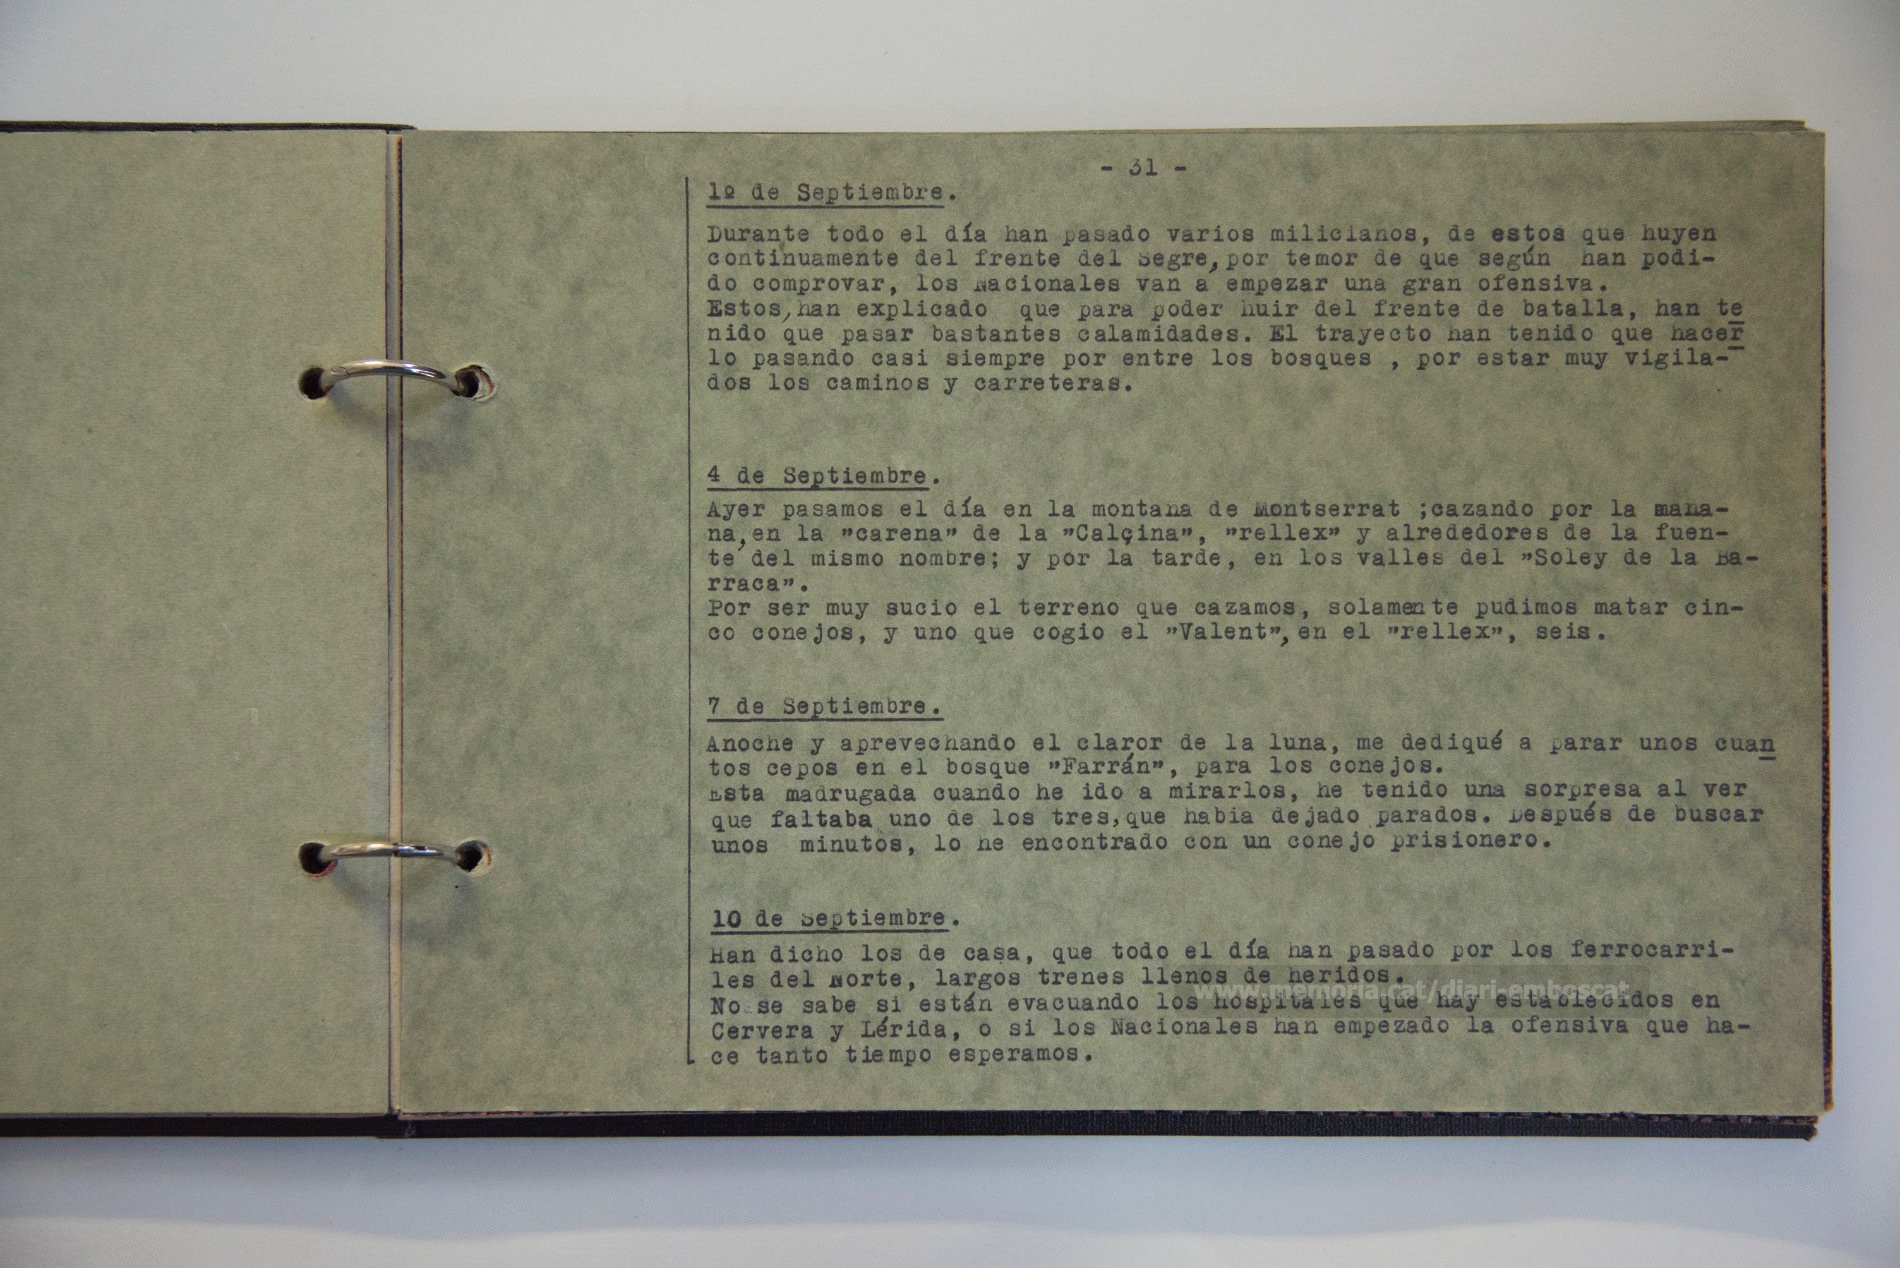 - 31 -
1º de Septiembre.
Durante todo el día han pasado varios milicianos, de estos que huyen
continuamente del frente del Segre, por temor de que según han podi-
do comprovar, los Nacionales van a empezar una gran ofensiva.
Estos, han explicado que para poder huir del frente de batalla, han te
nido que pasar bastantes calamidades. El trayecto han tenido que hacer
lo pasando casi siempre por entre los bosques , por estar muy vigila-
dos los caminos y carreteras.
4 de Septiembre.
Ayer pasamos el día en la montaña de Montserrat ;cazando por la maña-
na, en la "carena" de la "Calçina", "rellex" y alrededores de la fuen-
te del mismo nombre; y por la tarde, en los valles del "Soley de la Ba-
rraca".
Por ser muy sucio el terreno que cazamos, solamente pudimos matar cin-
co conejos, y uno que cogio el "Valent", en el "rellex", seis.
7 de Septiembre.
Anoche y aprevechando el claror de la luna, me dediqué a parar unos cuan
tos cepos en el bosque "Farrán", para los conejos.
Esta madrugada cuando he ido a mirarlos, he tenido una sorpresa al ver
que faltaba uno de los tres, que habia dejado parados. Después de buscar
unos minutos, lo he encontrado con un conejo prisionero.
10 de Septiembre.
Han dicho los de casa, que todo el día han pasado por los ferrocarri-
les del Norte, largos trenes llenos de heridos.
www.memoria.cat/diari-emboscat
No se sabe si están evacuando los hospitales que hay establecidos en
Cervera y Lérida, o si los Nacionales han empezado la ofensiva que ha-
ce tanto tiempo esperamos.